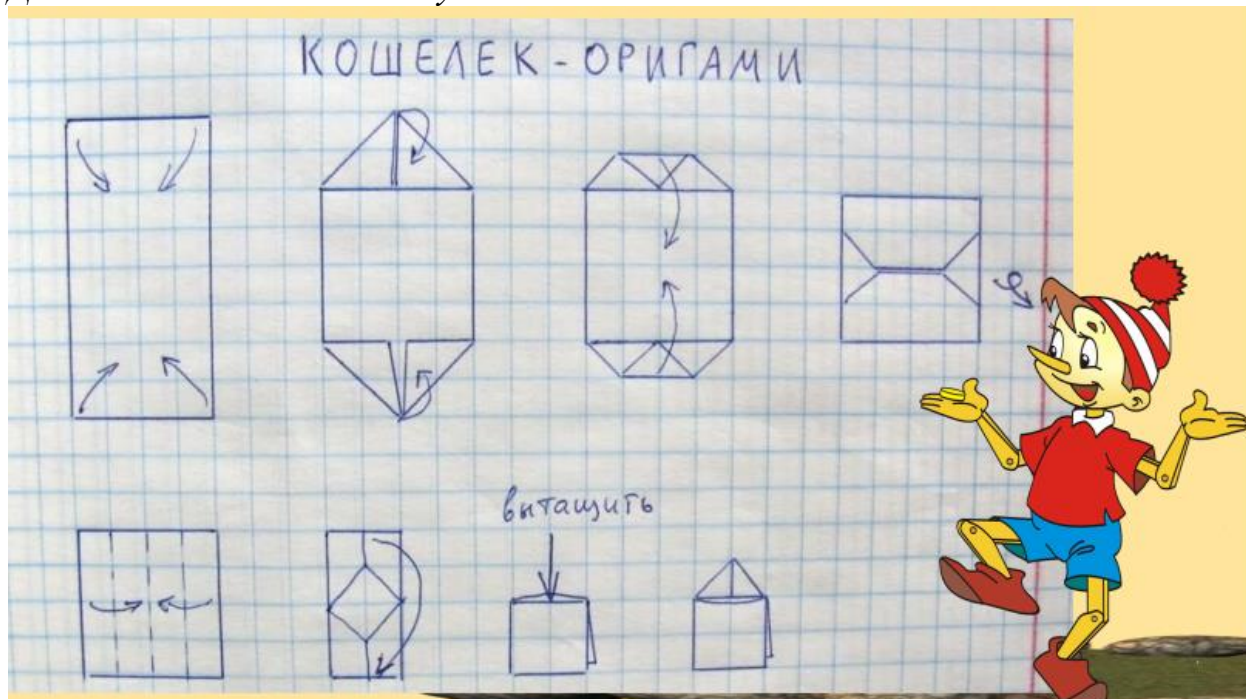 КОШЕЛЕК - ОРИГАМИ
вытащить